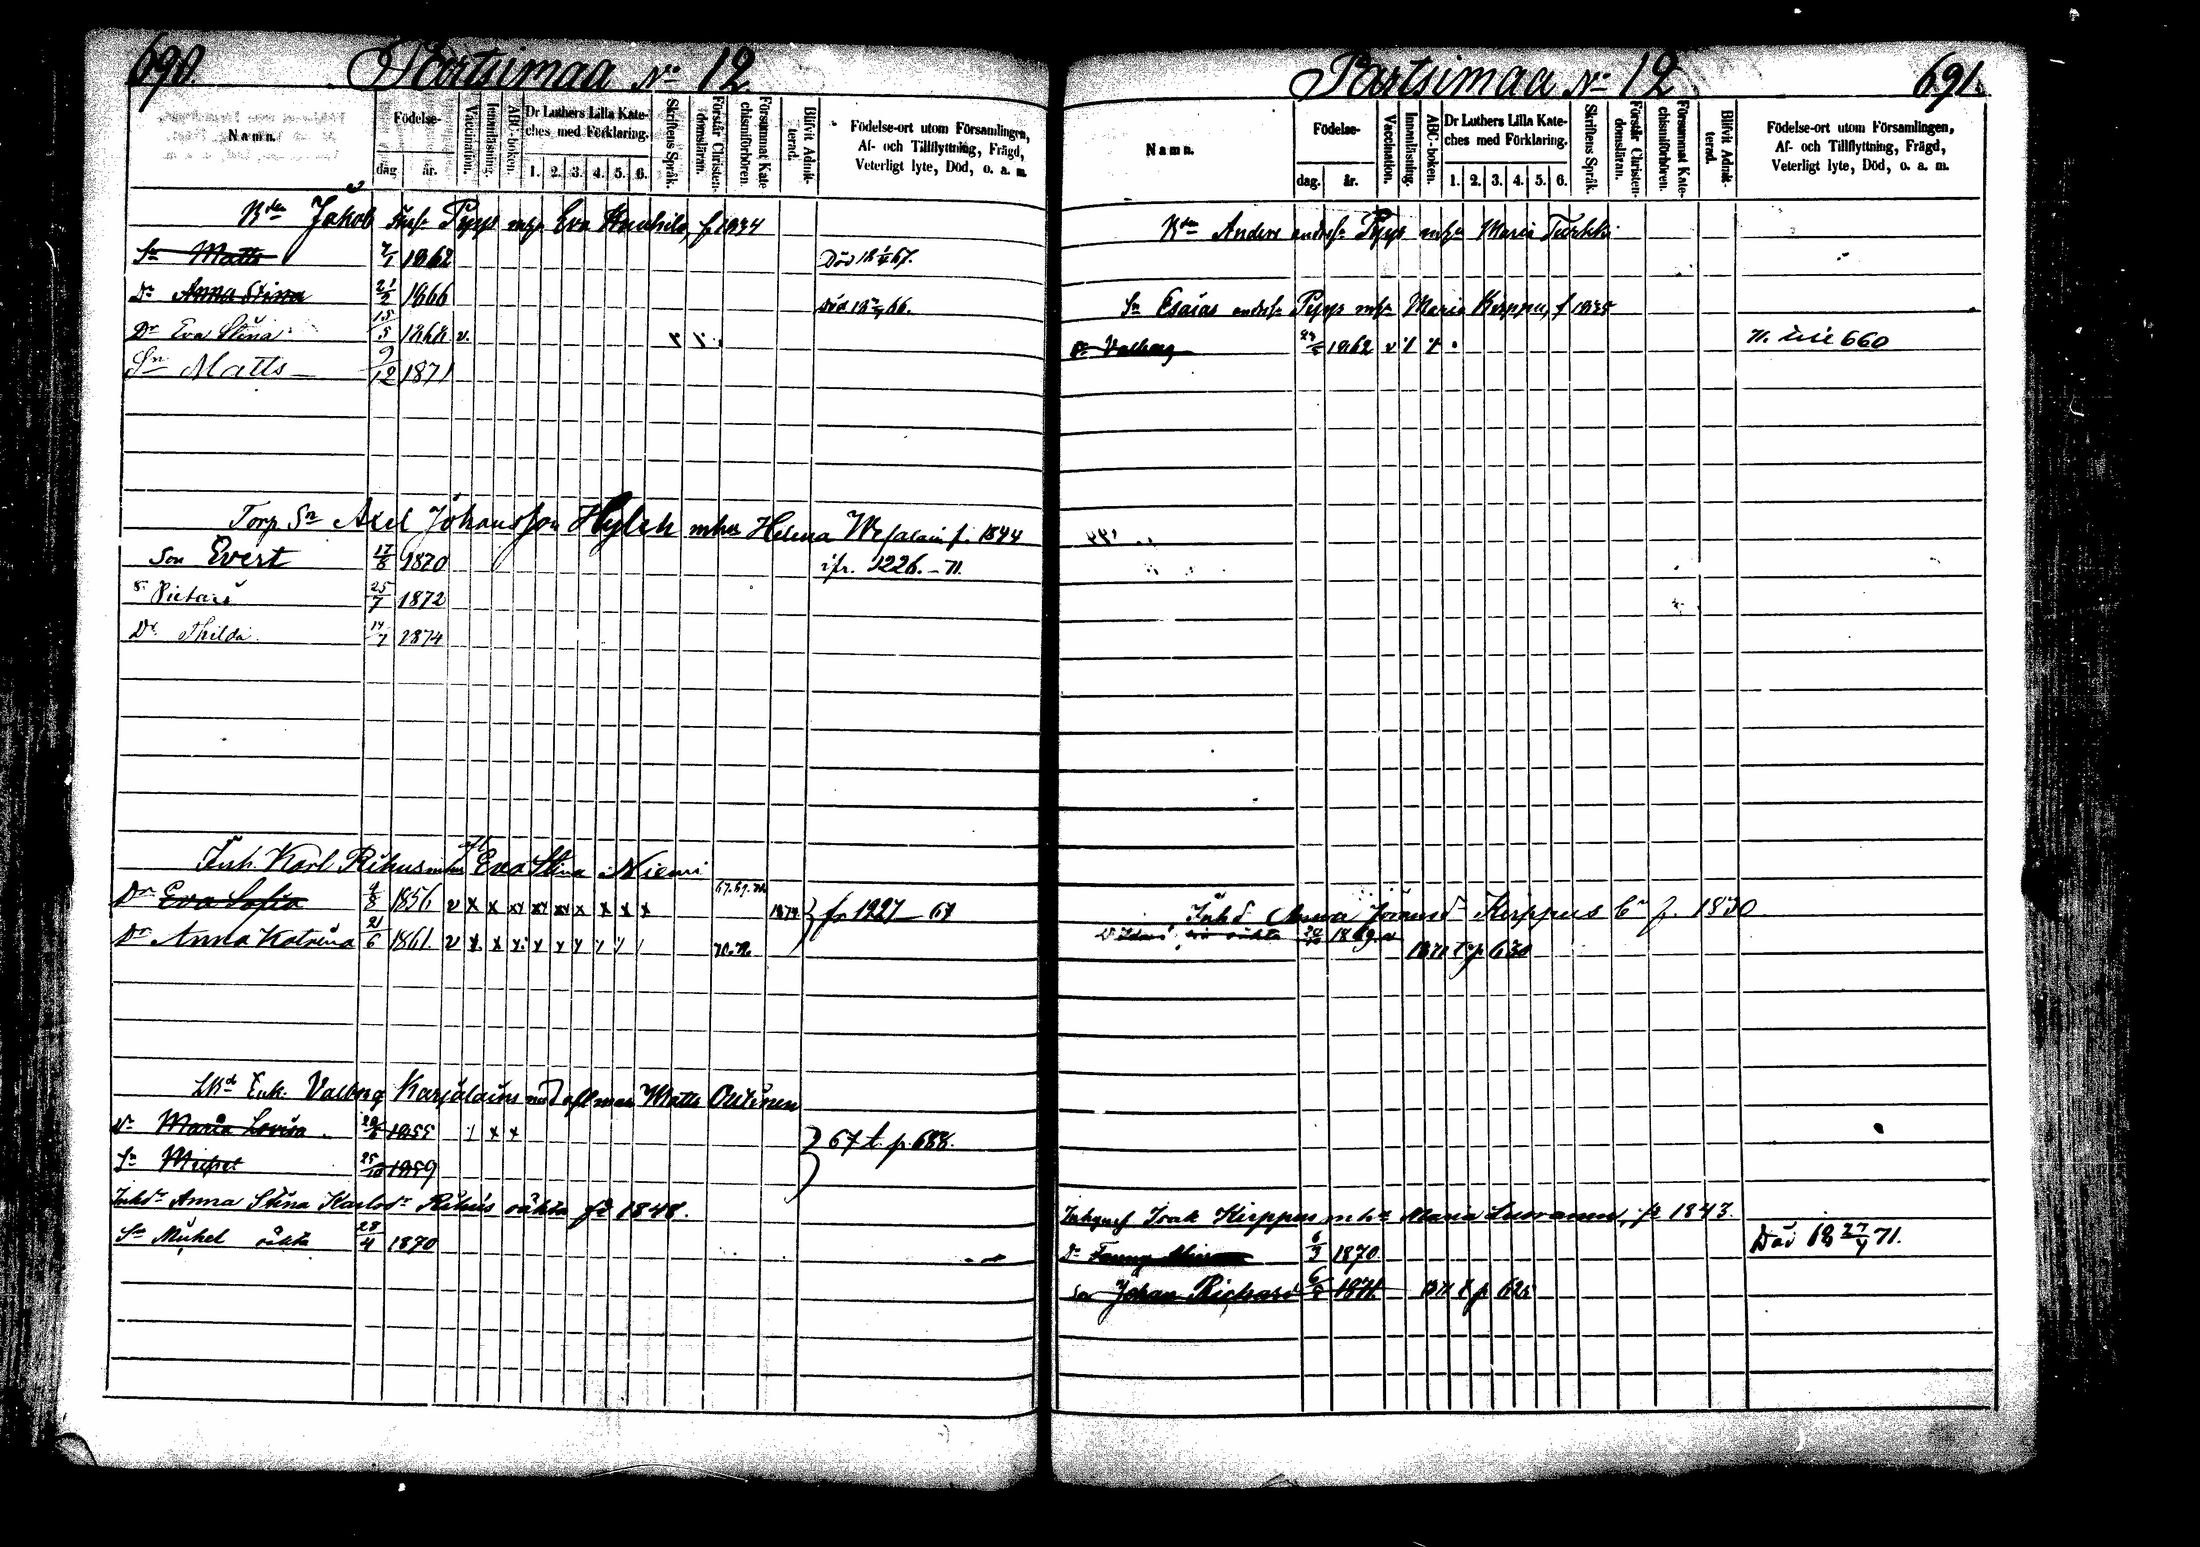 690. Partsimaa No 12
Namn.
Födelse-
dag
år.
Vaccination.
Innanläsning.
ABC-boken.
Dr Luthers Lilla Kate-
ches med Förklaring.
1. 2. 3. 4. 5. 6.
Skriftens Språk.
Förstår Christen-
domsläran.
Försummat Kate
chismiförhören.
Blifvit Admit-
terad.
Födelse-ort utom Församlingen,
Af- och Tillflyttning, Frägd,
Veterligt lyte, Död, o. a. m.
Jakob Pypp mhu Eva f. 1834
Sn Matts 1862 Död 67.
Dr Anna Stina 21/2 1866 Död 66.
Dr Eva Stina 15/5 1868 v.
Sn Matts 9/12 1871
Torp Sn Axel Johansson mhu Helena f. 1844
Son Evert 17/8 1870 ifr. 1226.-71.
25/7 1872
Dr Thilda 14/7 1874
Inh. Karl Rikus mhu Eva Stina Niemi
Dr Eva Sofia 4/8 1856 v x x x x x x x x x 67.69. 1874 } fr 1227-67
Dr Anna Katrina 21/6 1861 v x x x x x x
Enk. Valborg Karjalain Matts Outinen
Dr Maria Lovisa 1855 } 67 t. p. 688.
Sn Mickel 25/10 1859
Inhdr Anna Stina Karlsdr Rikus oäkta 1848.
Sn Mickel oäkta 28/4 1870
Partsimaa No 12 691.
Namn.
Födelse-
dag.
år.
Vaccination.
Innanläsning.
ABC-boken.
Dr Luthers Lilla Kate-
ches med Förklaring.
1. 2. 3. 4. 5. 6.
Skriftens Språk.
Förstår Christen-
domsläran.
Försummat Kate-
chismiförhören.
Blifvit Admit-
terad.
Födelse-ort utom Församlingen,
Af- och Tillflyttning, Frägd,
Veterligt lyte, Död, o. a. m.
Anders Pypp mhu Maria Turkki
Sn Esaias Pypp mhu Maria Kirppu, f 1835
Dr Valborg 1862 71. 660
Anna Kirppus f. 1830
oäkta 1869 1871 t p 630
Isak Kirppus mhu Maria Luoranen, 1843.
Dr Fanny 6/3 1870. Död 18 27/4 71.
Son Johan Richard 1871 1871 t p 625